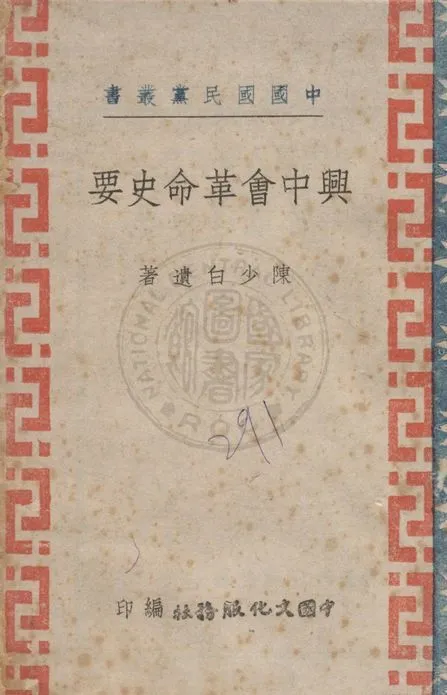 中國國民黨叢書
興中會革命史要
陳少白遺著
NATIONAL CENTRAL LIBRARY
國家圖書館
R.O.C.
291
中國文化服務社編印